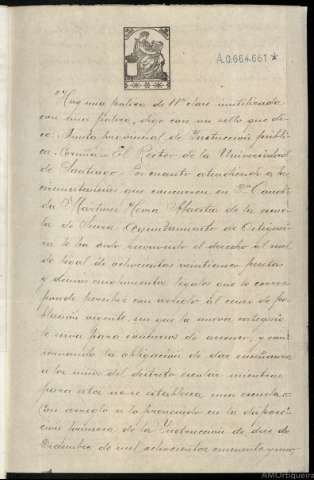 A.0.664.661 *
"Hay una poliza de 11ª clase inutilizada
con una fecha, digo con un sello que di-
ce: Junta provincial de Instrucción pública
Coruña = El Rector de la Universidad
de Santiago = Por cuanto atendiendo a las
circunstancias que concurren en Dª Candi-
da Martínez Mera Maestra de la escue-
la de Ayuntamiento de Ortiguei-
ra le ha sido reconocido el derecho al suel-
do legal de ochocientas veinticinco pesetas
y demas emolumentos legales que le corres-
ponde percibir con arreglo al censo de po-
blación vigente, sin que la nueva categoría
le sirva para continuar de ascenso, y con-
servando la obligación de dar enseñanza
a los niños del distrito escolar mientras
para estos no se establezca una escuela =
Con arreglo a lo prevenido en la disposi-
ción primera de la Instrucción de diez de
Diciembre de mil ochocientos cincuenta y uno
AMOrtigueira